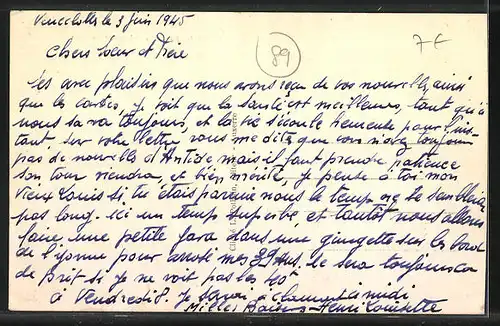 Vaucelotte le 3 Juin 1945
7 €
89
Chers Soeur et Frère
Ses avec plaisirs que nous avons reçu de vos nouvelles, ainsi
que les cartes, je voit que la santé est meilleurs, tant qu'à
nous sa va toujours, et la vie s'écoule heureuse pour l'ins-
tant, sur votre lettre vous me dite que vous n'avez toujours
pas de nouvelles d'Antide mais il faut prendre patience
son tour viendra, et bien mérité, je pense à toi mon
vieux Louis si tu étais parmie nous le temp ne te semblerai
pas long. ici un temp superbe, et tantôt nous allons
faire une petite java dans une guinguette sur les bord
de l'yonne pour arrosé mes 39 Ans. Ce sera toujours ça
de prit si je ne voit pas les 40
à Vendredi 8. je serai à midi
Milles Baisers Henri Louisette